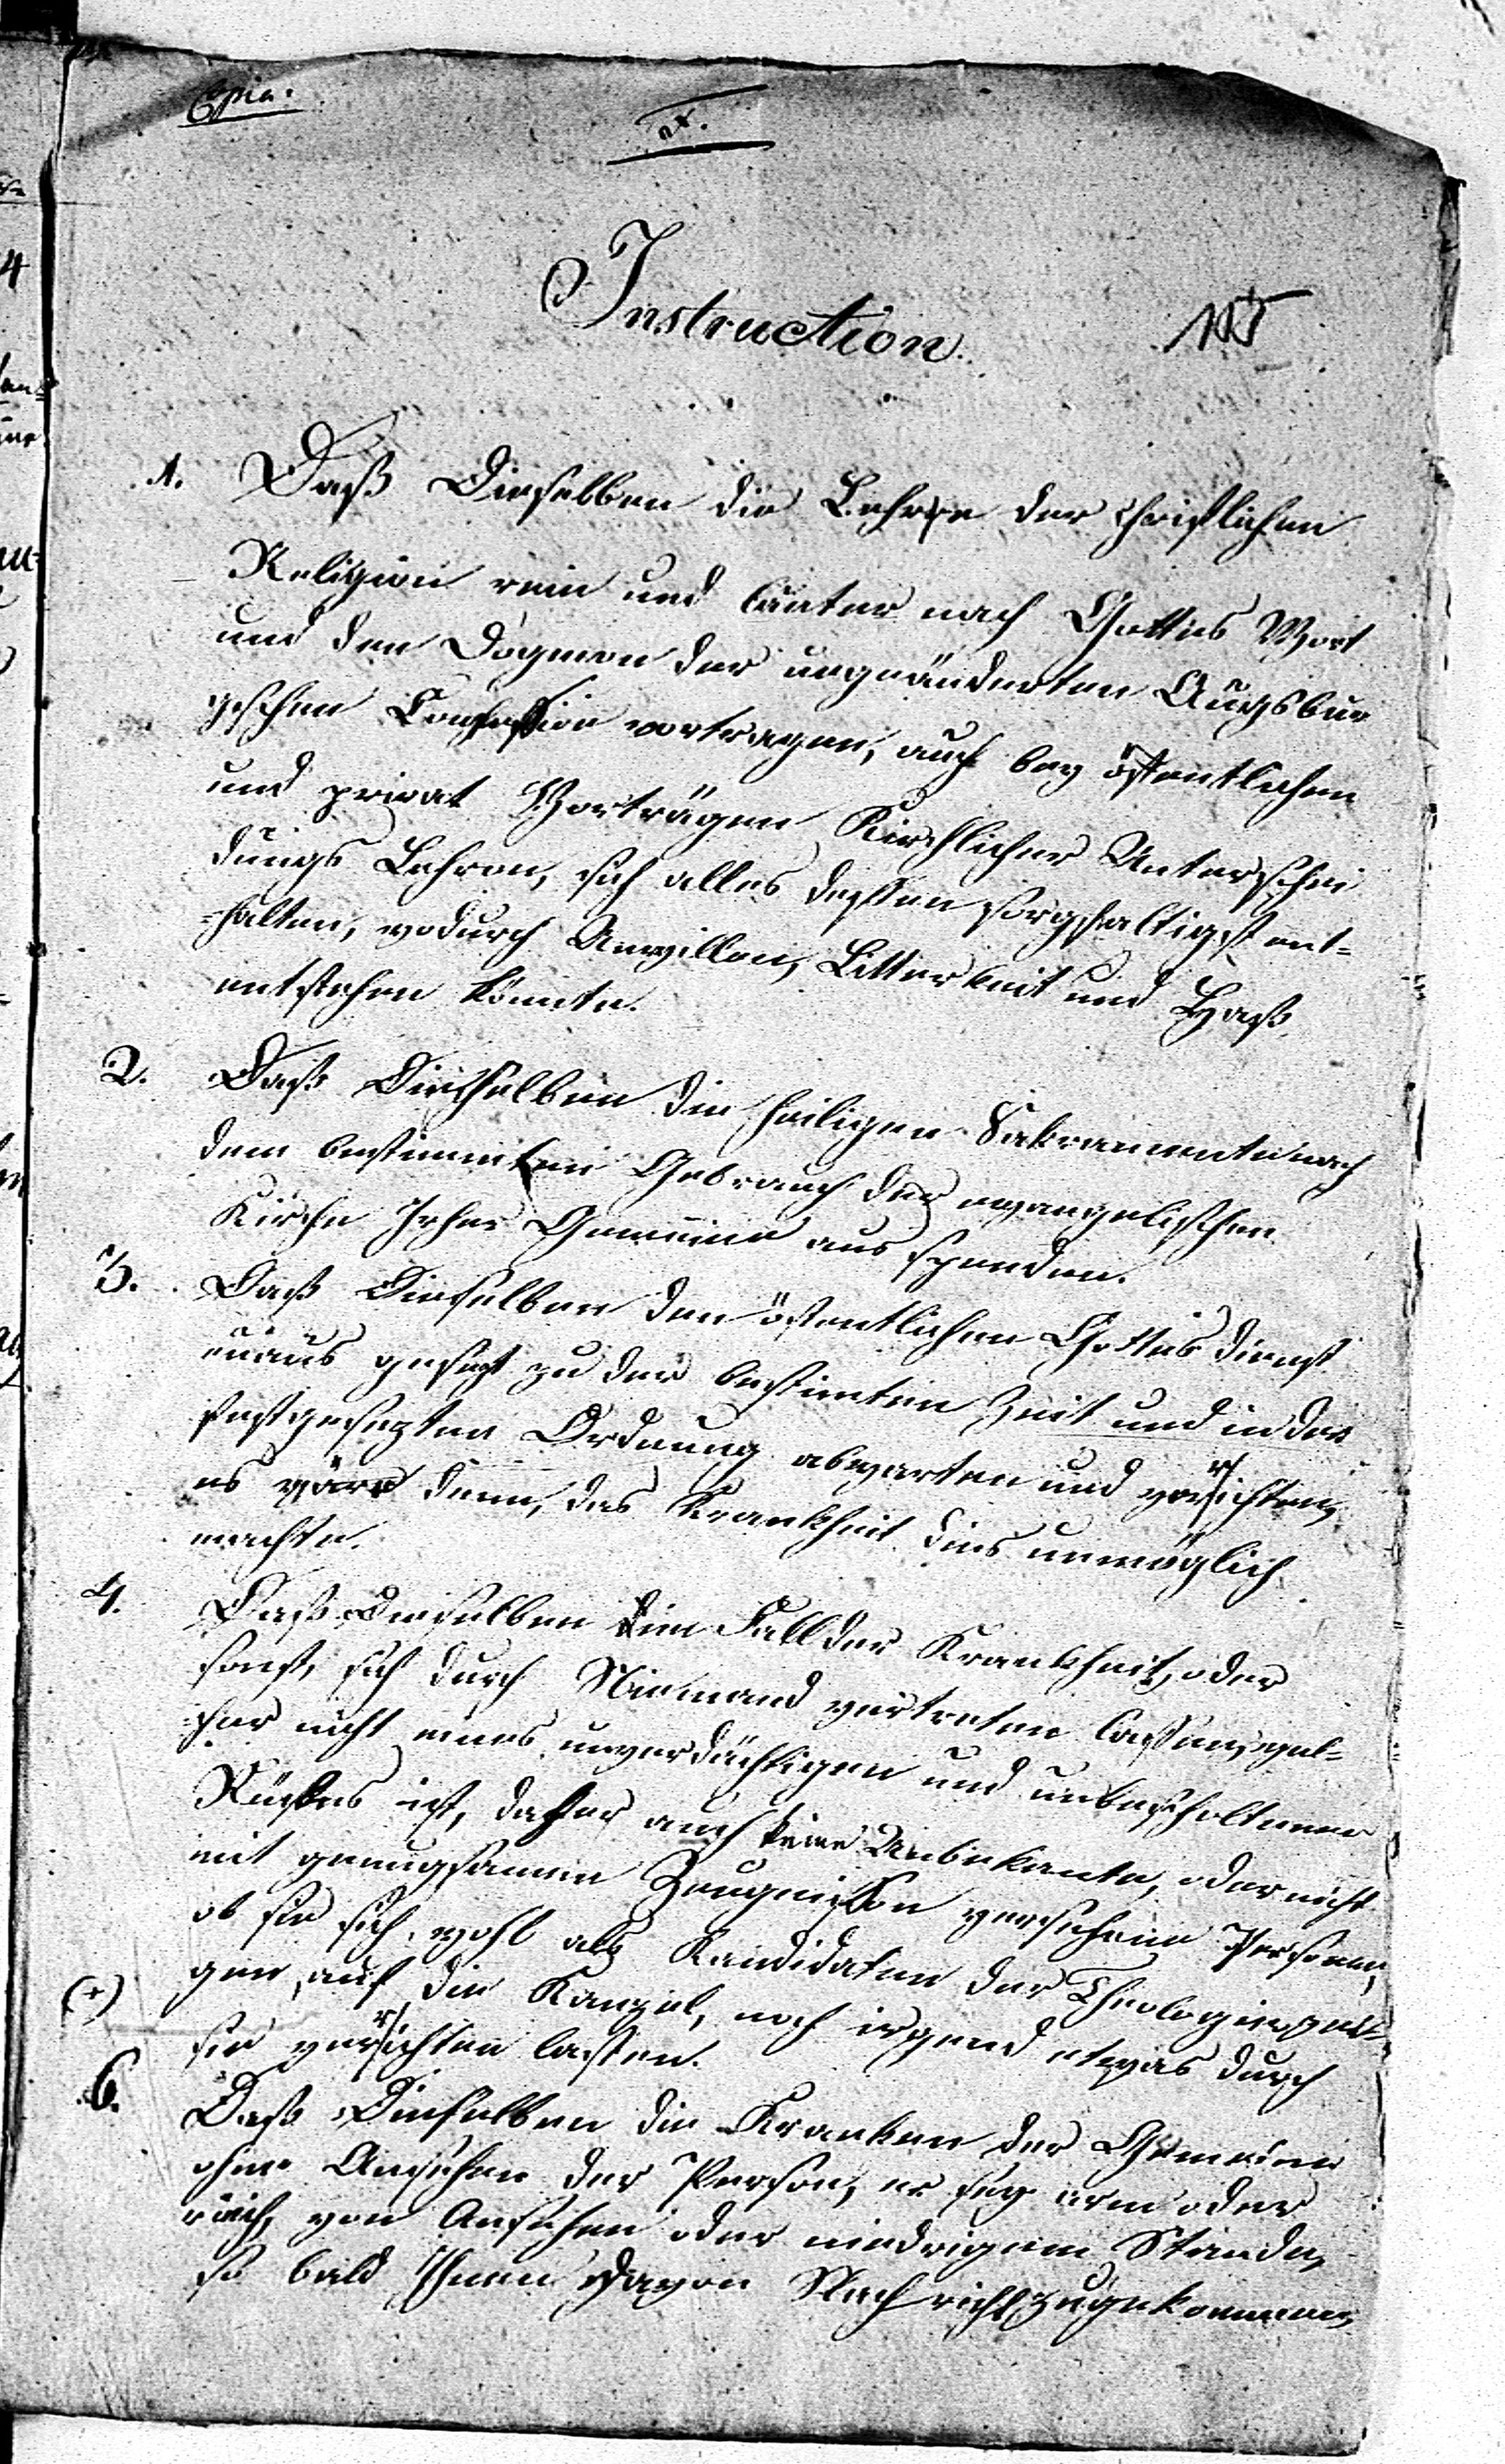 Copia.
Instruction.
1. Daß Dieselben die Lehre der christlichen
Religion rein und lauter nach Gottes Wort
und den Dogmen der ungeänderten Augsbur
gschen Confession vortragen, auch bey öffentlichen
und privat Vorträgen Kirchlicher Unterschei
dungs Lehren, sich alles dessen sorgfaltigst ent-
-halten, wodurch Unwillen, Bitterkeit und Haß
entstehen könnte.
2. Daß Dieselben die heiligen Sakramente nach
dem bestimmten Gebrauch der evangelischen
Kirche Jhrer Gemeine aus spenden.
3. Daß Dieselben den öffentlichen Gottes dienst
unaus gesezt zu der bestimten Zeit und in der
festgesezten Ordnung abwarten und verrichten,
es wäre denn, das Krankheit dies unmöglich
machte.
4. Daß Dieselben im Fall der Krankheit, oder
sonst, sich durch Niemand vertreten lassen, wel-
cher nicht eines unverdächtigen und unbescholtenen
Rufes ist, daher auch keine Unbekante, oder nicht
mit genugsamen Zeugnissen versehene Personen,
ob sie sich wohl als Kandidaten der Theologie
gen, auf die Kanzel, noch irgend etwas durch
(+) sie verrichten lassen.
6. Daß Dieselben die Kranken der Gemeine
ohne Ansehen der Person, er sey arm oder
reich, von Ansehen oder niedrigem Stande,
so bald Ihnen davon Nachricht zugekommen,